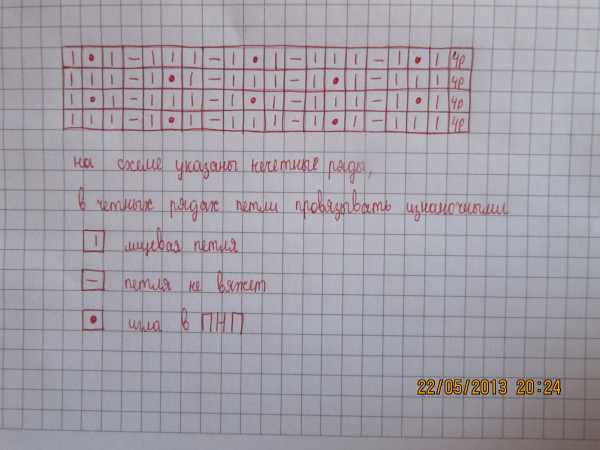 | • | – | | | – | | • | – | | | – | • | 4р
| | | – | • | – | | | – | • | – | | | 4р
| • | – | | | – | • | – | | | – | • | 4р
| | | – | • | – | | | – | • | – | | | 4р
на схеме указаны нечетные ряды,
в четных рядах петли провязывать изнаночными
| лицевая петля
– петля не вяжет
• игла в ПНП
22/05/2013 20:24